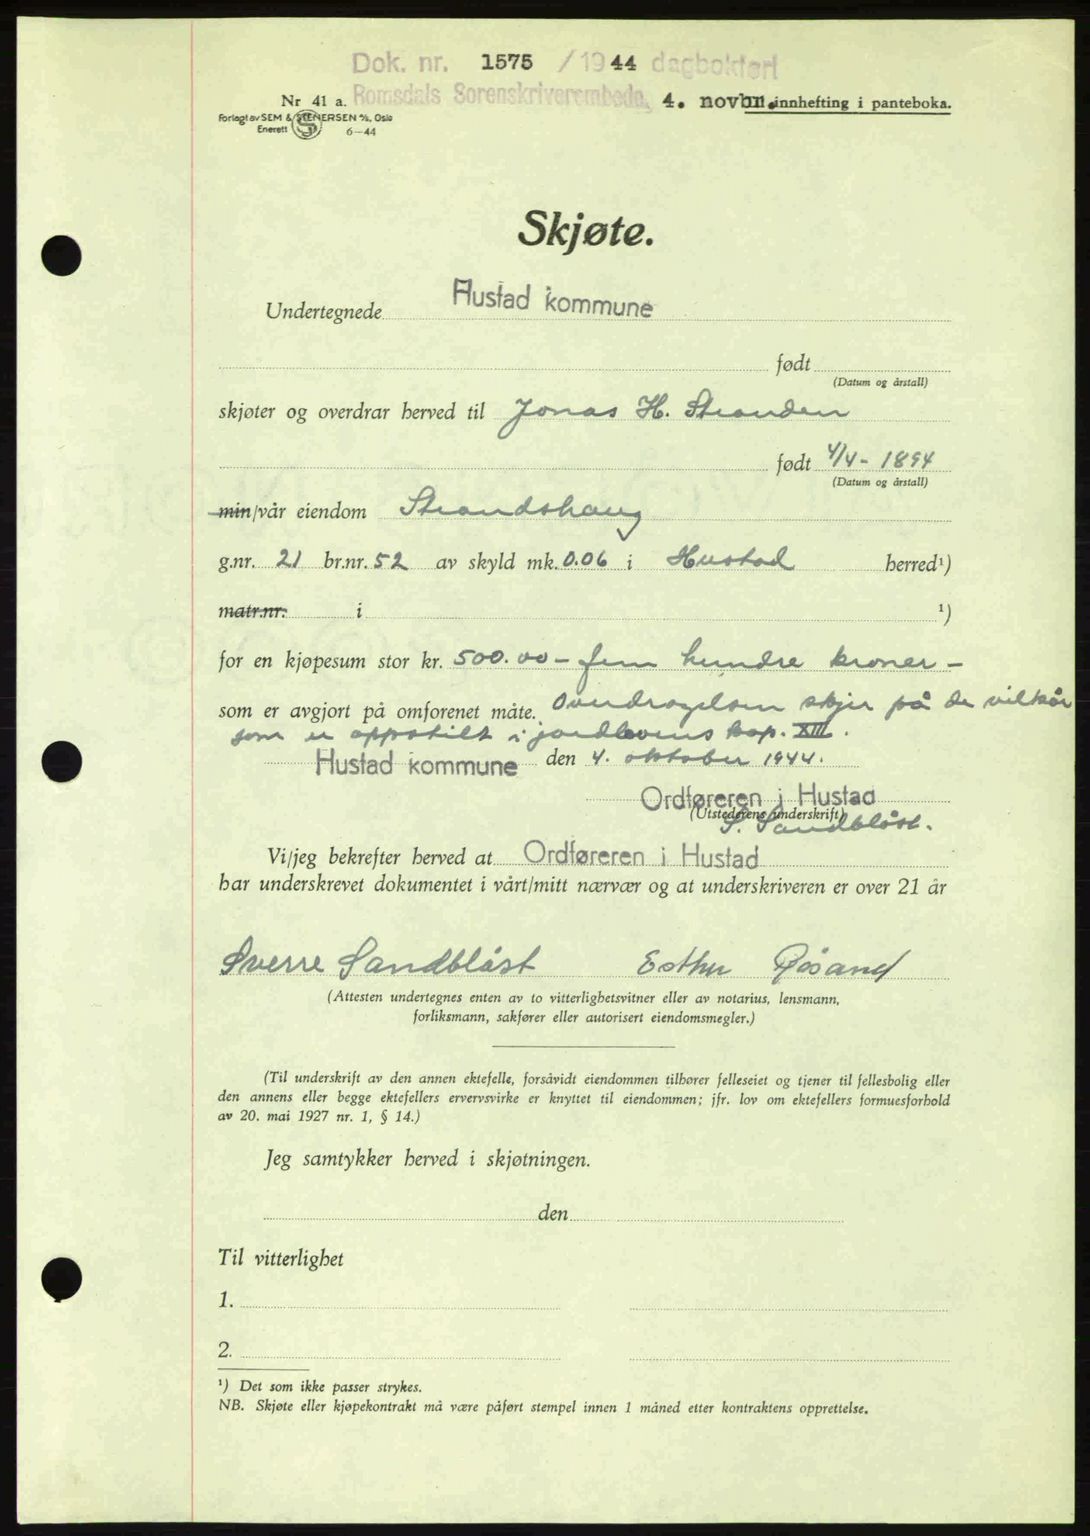 Dok. nr. 1575 / 1944 dagbokført
Nr 41 a. Romsdals Sorenskriverembede, 4. novbr. innhefting i panteboka.
Forlagt av SEM & STENERSEN A/S, Oslo
Enerett S 6-44
Skjøte.
Undertegnede Hustad kommune
født
(Datum og årstall)
skjøter og overdrar herved til Jonas H. Stranden
født 4/4 - 1894
(Datum og årstall)
min/vår eiendom Strandshaug
g.nr. 21 br.nr. 52 av skyld mk. 0.06 i Hustad herred¹)
matr.nr. i ¹)
for en kjøpesum stor kr. 500.00 - fem hundre kroner -
som er avgjort på omforenet måte. Overdragelsen skjer på de vilkår
som er oppstilt i jordlovens kap. XIII.
Hustad kommune den 4. oktober 1944.
Ordføreren i Hustad
(Utstederens underskrift)
S. Sandblåst.
Vi/jeg bekrefter herved at Ordføreren i Hustad
har underskrevet dokumentet i vårt/mitt nærvær og at underskriveren er over 21 år
Sverre Sandblåst Esther Røsand
(Attesten undertegnes enten av to vitterlighetsvitner eller av notarius, lensmann,
forliksmann, sakfører eller autorisert eiendomsmegler.)
(Til underskrift av den annen ektefelle, forsåvidt eiendommen tilhører felleseiet og tjener til fellesbolig eller
den annens eller begge ektefellers ervervsvirke er knyttet til eiendommen; jfr. lov om ektefellers formuesforhold
av 20. mai 1927 nr. 1, § 14.)
Jeg samtykker herved i skjøtningen.
den
Til vitterlighet
1.
2.
¹) Det som ikke passer strykes.
NB. Skjøte eller kjøpekontrakt må være påført stempel innen 1 måned etter kontraktens opprettelse.